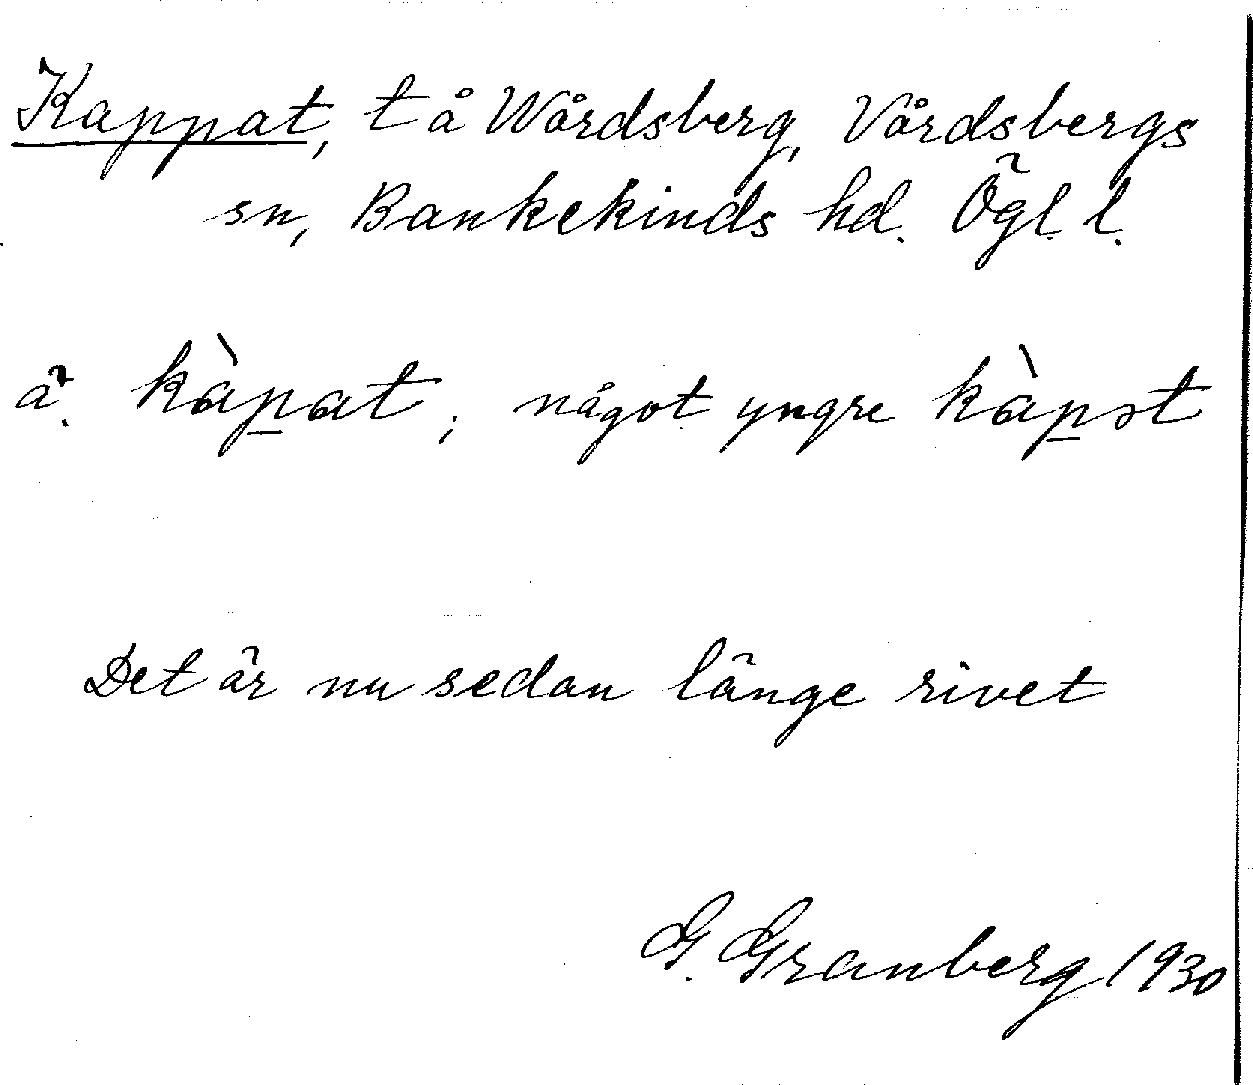 Kappat, t å Wårdsberg, Vårdsbergs
sn, Bankekinds hd. Ögl. l.
ä. kàpat; något yngre kàpət
Det är nu sedan länge rivet
G. Granberg 1930